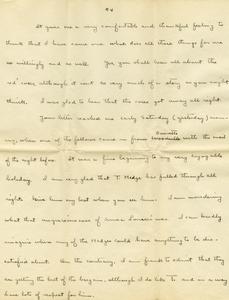 It gave me a very comfortable and thankful feeling to
think that I have some one who does all these things for me
so willingly and so well. Yes you shall hear all about the
although it isn't so very much of a story as you might
think. I was glad to hear that the case got away all right.
Your letter reached me early Saturday (yesterday) morn-
ing, when one of the fellows came in from with the mail
of the night before. It was a fine beginning to a very enjoyable
holiday. I am very glad that T. Hedge has pulled through all
right. Give him my best when you see him. I am wondering
what that mysteriousness of was. I can hardly
imagine where any of the Hedges could have anything to be dis-
satisfied about. On the contrary, I am frank to admit that they
are getting the best of the bargain, although I do like T. and in a way
have lots of respect for him.